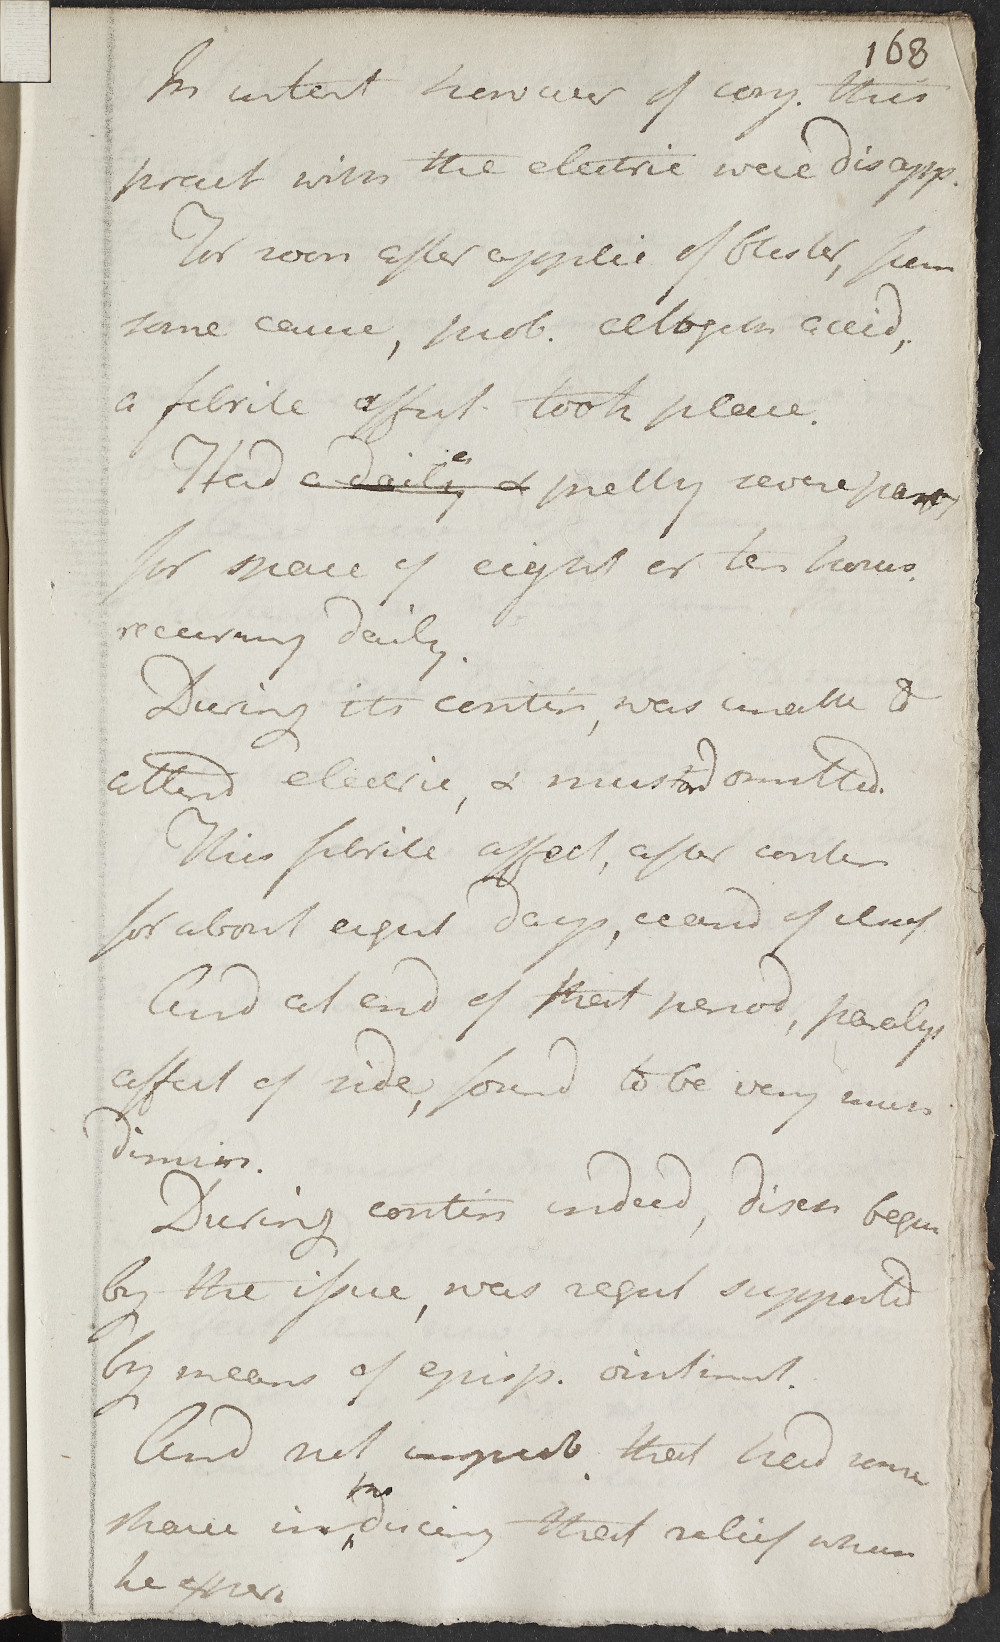 168
In intent however of conj. this
pract with the electric were disapp.
For soon after applic of blister, from
some cause, prob. altogeth accid,
a febrile affect. took place.
Had a daily & pretty severe
for space of eight or ten hours.
recurring daily.
During its contin, was unable to
attend electric, & omitted.
This febrile affect, after contin
for about eight days, ceased of itself
And at end of that period, paralys
affect of side, found to be very much
dimin.
During contin indeed, disch begun
by the issue, was regul supported
by means of episp. ointment.
And not improb. that had some
share in producing that relief which
he exper.